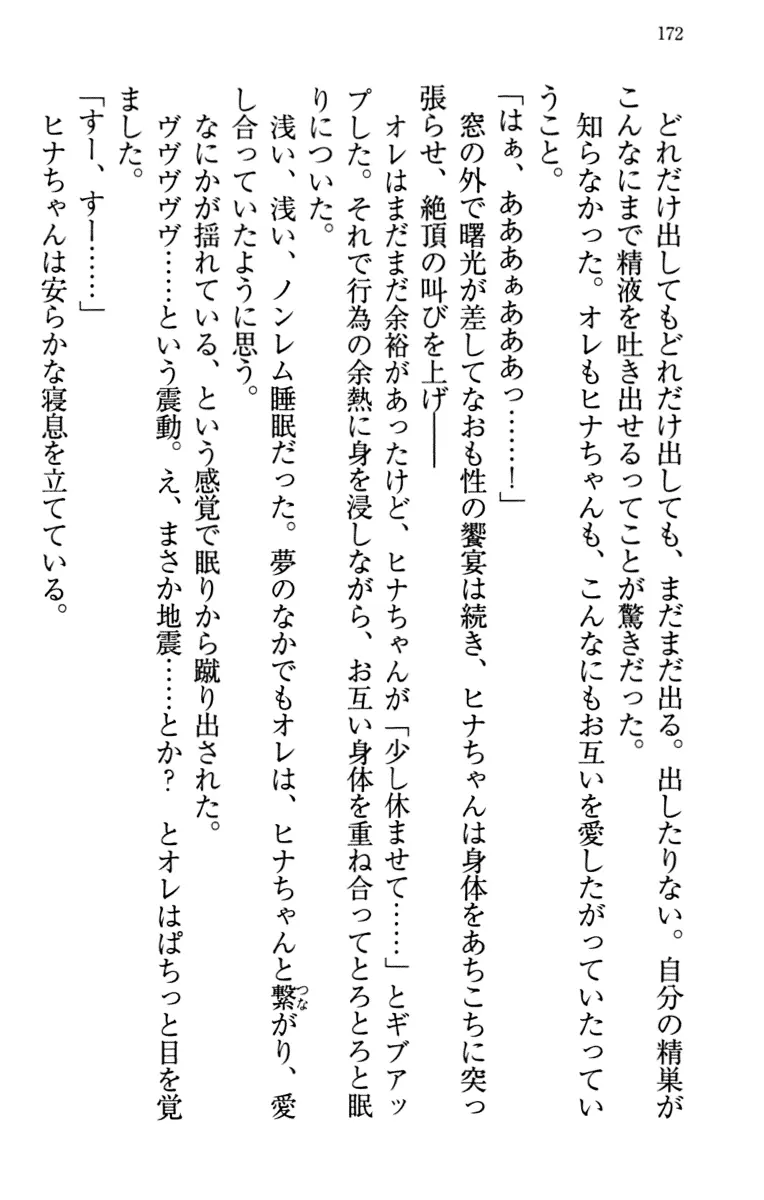 172
どれだけ出してもどれだけ出しても、まだまだ出る。出したりない。自分の精巣が
こんなにまで精液を吐き出せるってことが驚きだった。
知らなかった。オレもヒナちゃんも、こんなにもお互いを愛したがっていたってい
うこと。
「はぁ、あああぁあああっ……！」
窓の外で曙光が差してなおも性の饗宴は続き、ヒナちゃんは身体をあちこちに突っ
張らせ、絶頂の叫びを上げ――
オレはまだまだ余裕があったけど、ヒナちゃんが「少し休ませて……」とギブアッ
プした。それで行為の余熱に身を浸しながら、お互い身体を重ね合ってとろとろと眠
りについた。
浅い、浅い、ノンレム睡眠だった。夢のなかでもオレは、ヒナちゃんと繋がり、愛
つな
し合っていたように思う。
なにかが揺れている、という感覚で眠りから蹴り出された。
ヴヴヴヴヴ……という震動。え、まさか地震……とか？　とオレはぱちっと目を覚
ました。
「すー、すー……」
ヒナちゃんは安らかな寝息を立てている。